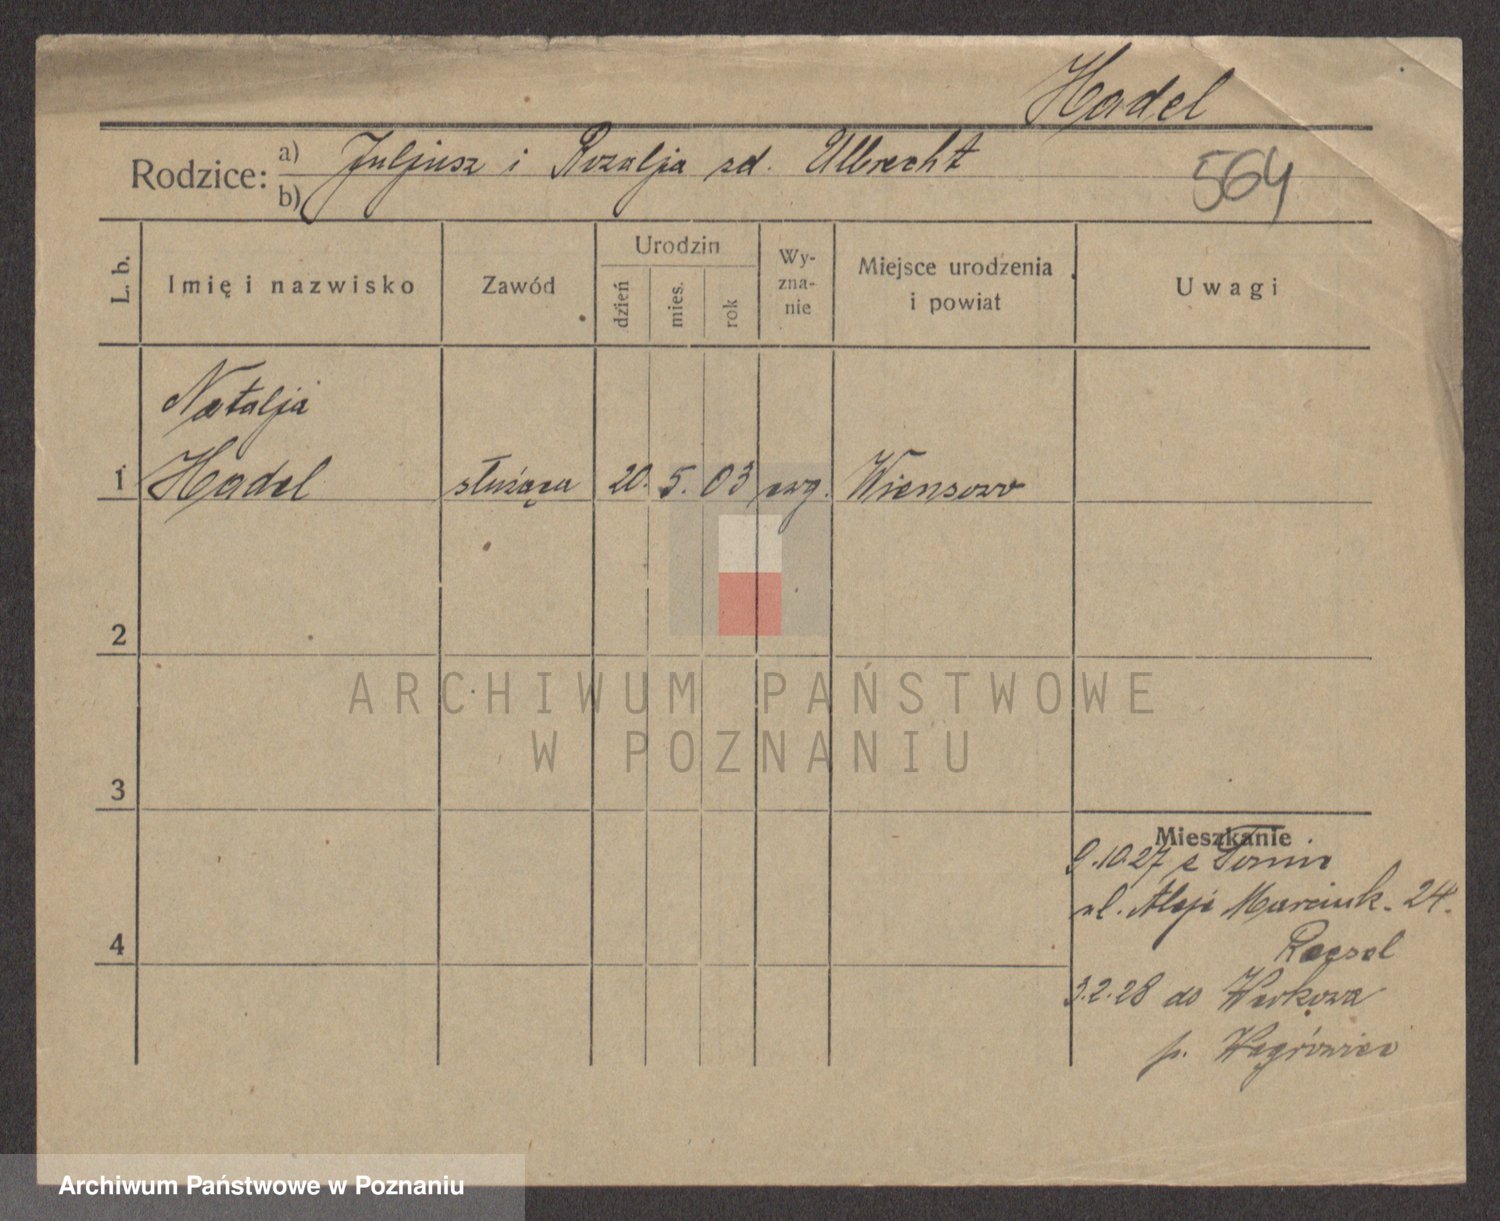 Hadel
Rodzice: a) Juljusz i Rozalja zd. Ulbrecht
b)
564
L. b.
Imię i nazwisko
Zawód
Urodzin
dzień
mies.
rok
Wy-
zna-
nie
Miejsce urodzenia
i powiat
Uwagi
Natalja
1 Hadel służąca 20. 5. 03 ewg. Wiensowo
2
3
4
Mieszkanie
9.10.27 z
ul. Aleje Marcink. 24.
3.2.28 do
p. Wągrówiec
ARCHIWUM PAŃSTWOWE
W POZNANIU
Archiwum Państwowe w Poznaniu